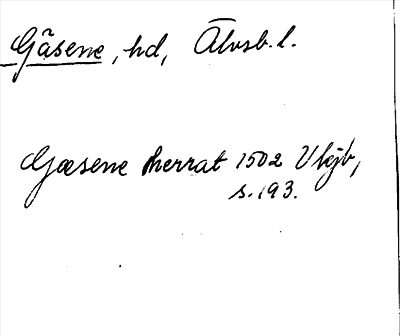 Gäsene, hd, Älvsb. l.
Gæsene herrat 1502 Vkjb,
s. 193.